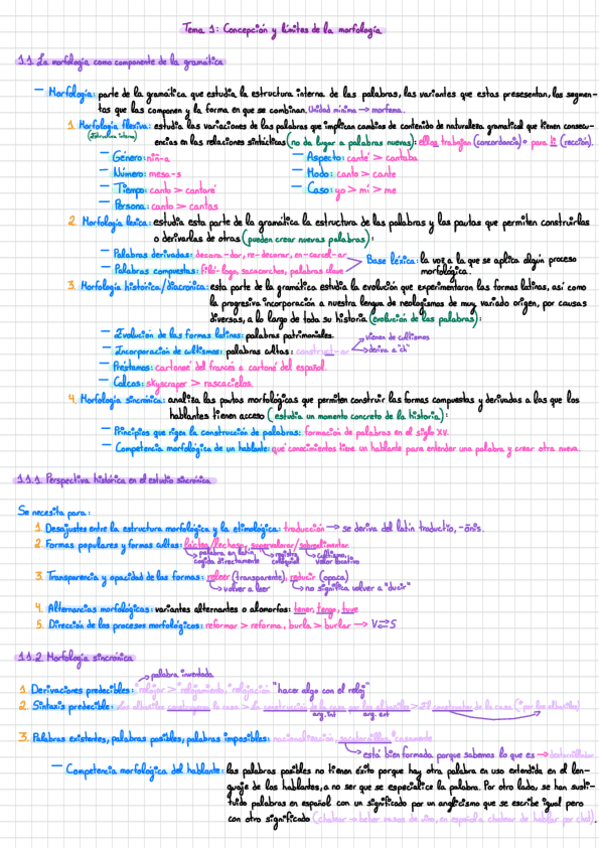 Tema 1: Concepción y límites de la morfología
1.1 La morfología como componente de la gramática
— Morfología: parte de la gramática que estudia la estructura interna de las palabras, las variantes que estas presesentan, los segmen-
tos que las componen y la forma en que se combinan. Unidad mínima → morfema.
1. Morfología flexiva: estudia las variaciones de las palabras que implican cambios de contenido de naturaleza gramatical que tienen consecu-
encias en las relaciones sintácticas (no da lugar a palabras nuevas): ellos trabajan (concordancia) o para ti (rección).
— Género: niñ-a — Aspecto: canté > cantaba
— Número: mesa-s — Modo: canto > cante
— Tiempo: canto > cantaré — Caso: yo > mí > me
— Persona: canto > cantas
2. Morfología léxica: estudia esta parte de la gramática la estructura de las palabras y las pautas que permiten construirlas
o derivarlas de otras (pueden crear nuevas palabras):
— Palabras derivadas: decora-dor, re-decorar, en-carcel-ar
Base léxica: la voz a la que se aplica algún proceso
— Palabras compuestas: filó-logo, sacacorchos, palabras clave
morfológica.
3. Morfología histórica/diacrónica: esta parte de la gramática estudia la evolución que experimentaron las formas latinas, así como
la progresiva incorporación a nuestra lengua de neologismos de muy variado origen, por causas
diversas, a lo largo de toda su historia (evolución de las palabras):
— Evolución de las formas latinas: palabras patrimoniales.
vienen de cultismos
— Incorporación de cultismos: palabras cultas: construct-or
deriva a "ch"
— Préstamos: cartoneé del francés a cartoné del español.
— Calcos: skyscraper > rascacielos.
4. Morfología sincrónica: analiza las pautas morfológicas que permiten construir las formas compuestas y derivadas a las que los
hablantes tienen acceso (estudia un momento concreto de la historia):
— Principios que rigen la construcción de palabras: formación de palabras en el siglo XV.
— Competencia morfológica de un hablante: qué conocimientos tiene un hablante para entender una palabra y crear otra nueva.
1.1.1 Perspectiva histórica en el estudio sincrónico
Se necesita para:
1. Desajustes entre la estructura morfológica y la etimológica: traducción → se deriva del latín traductio, -ōnis.
2. Formas populares y formas cultas: lácteo/lechoso, supervalorar/sobrealimentar.
palabra en latín registro cultismo,
cogida directamente coloquial valor locativo
3. Transparencia y opacidad de las formas: releer (transparente), reducir (opaca)
volver a leer no significa volver a "ducir"
4. Alternancias morfológicas: variantes alternantes o alomorfos: tener, tengo, tuve
5. Dirección de los procesos morfológicos: reformar > reforma, burla > burlar → V⇄S
1.1.2 Morfología sincrónica
palabra inventada
1. Derivaciones predecibles: relojar > relojamiento, relojación "hacer algo con el reloj"
2. Sintaxis predecible: Los albañiles construyeron la casa > La construcción de la casa por los albañiles > El constructor de la casa (*por los albañiles)
arg. int arg. ext
3. Palabras existentes, palabras posibles, palabras imposibles: nacionalización,
está bien formada porque sabemos lo que es →
— Competencia morfológica del hablante: las palabras posibles no tienen éxito porque hay otra palabra en uso extendida en el len-
guaje de los hablantes, a no ser que se especialice la palabra. Por otro lado, se han susti-
tuido palabras en español con un significado por un anglicismo que se escribe igual pero
con otro significado (chatear → beber vasos de vino, en español chatear de hablar por chat).